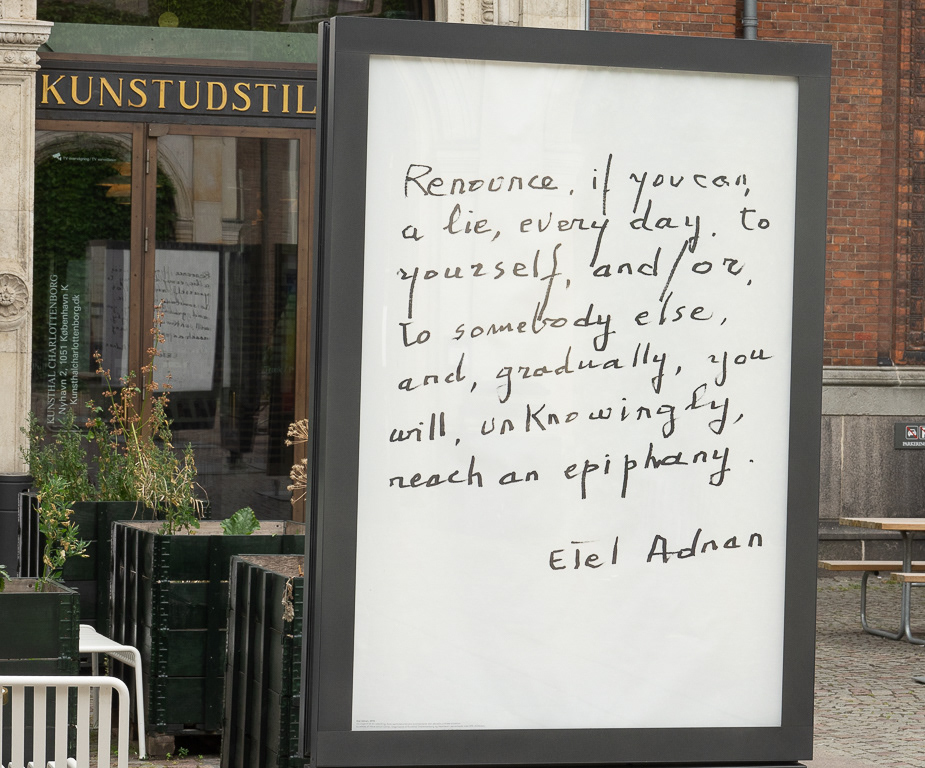 KUNSTUDSTIL
Renounce, if you can,
a lie, every day, to
yourself, and/or,
to somebody else,
and, gradually, you
will, unknowingly,
reach an epiphany.
Etel Adnan
KUNSTHAL CHARLOTTENBORG
Nyhavn 2, 1051 København K
Kunsthalcharlottenborg.dk